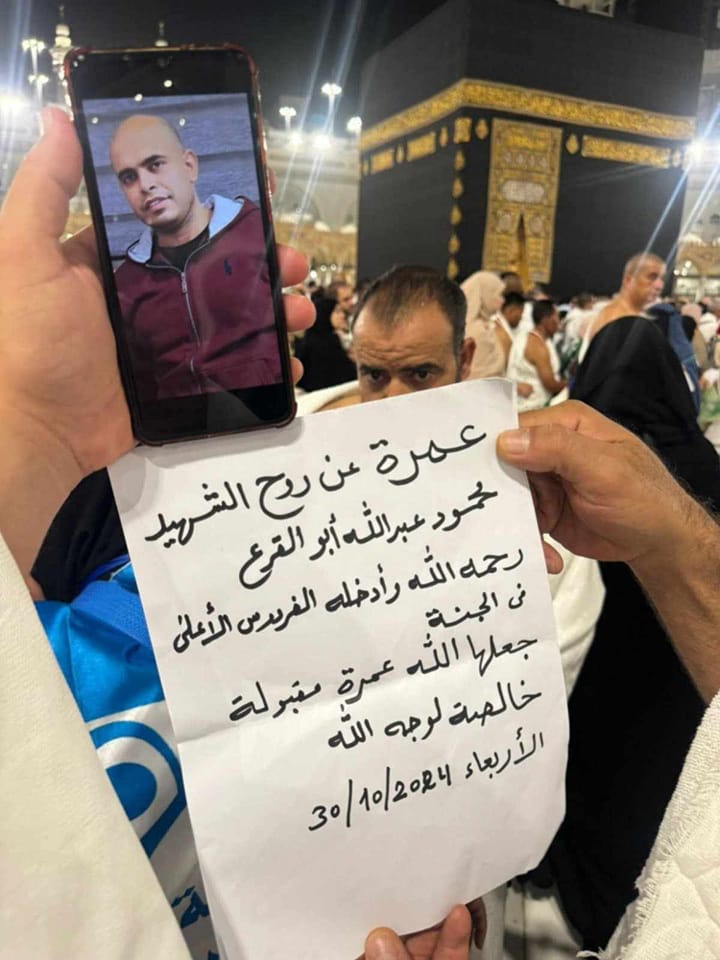 عمرة عن روح الشهيد
محمود عبدالله أبو القرع
رحمه الله وأدخله الفردس الأعلى
في الجنة
جعلها الله عمرة مقبولة
خالصة لوجه الله
الأربعاء 30/10/2024